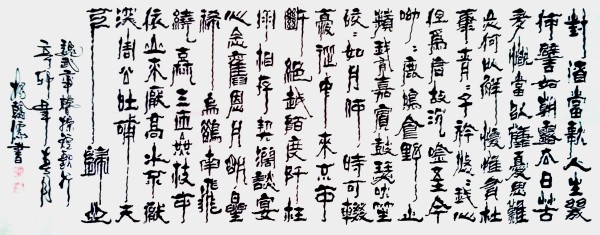 對酒當歌人生幾
何譬如朝露去日苦
多慨當以慷憂思難
忘何以解憂惟有杜
康青青子衿悠悠我心
但爲君故沉吟至今
呦呦鹿鳴食野之
蘋我有嘉賓鼓瑟吹笙
皎皎如月何時可輟
憂從中來不可
斷絕越陌度阡枉
用相存契闊談宴
心念舊恩月明星
稀烏鵲南飛
繞樹三匝無枝可
依山不厭高水不厭
深周公吐哺天
下歸心
魏武帝曹操短歌行
辛卯年春月
楊書